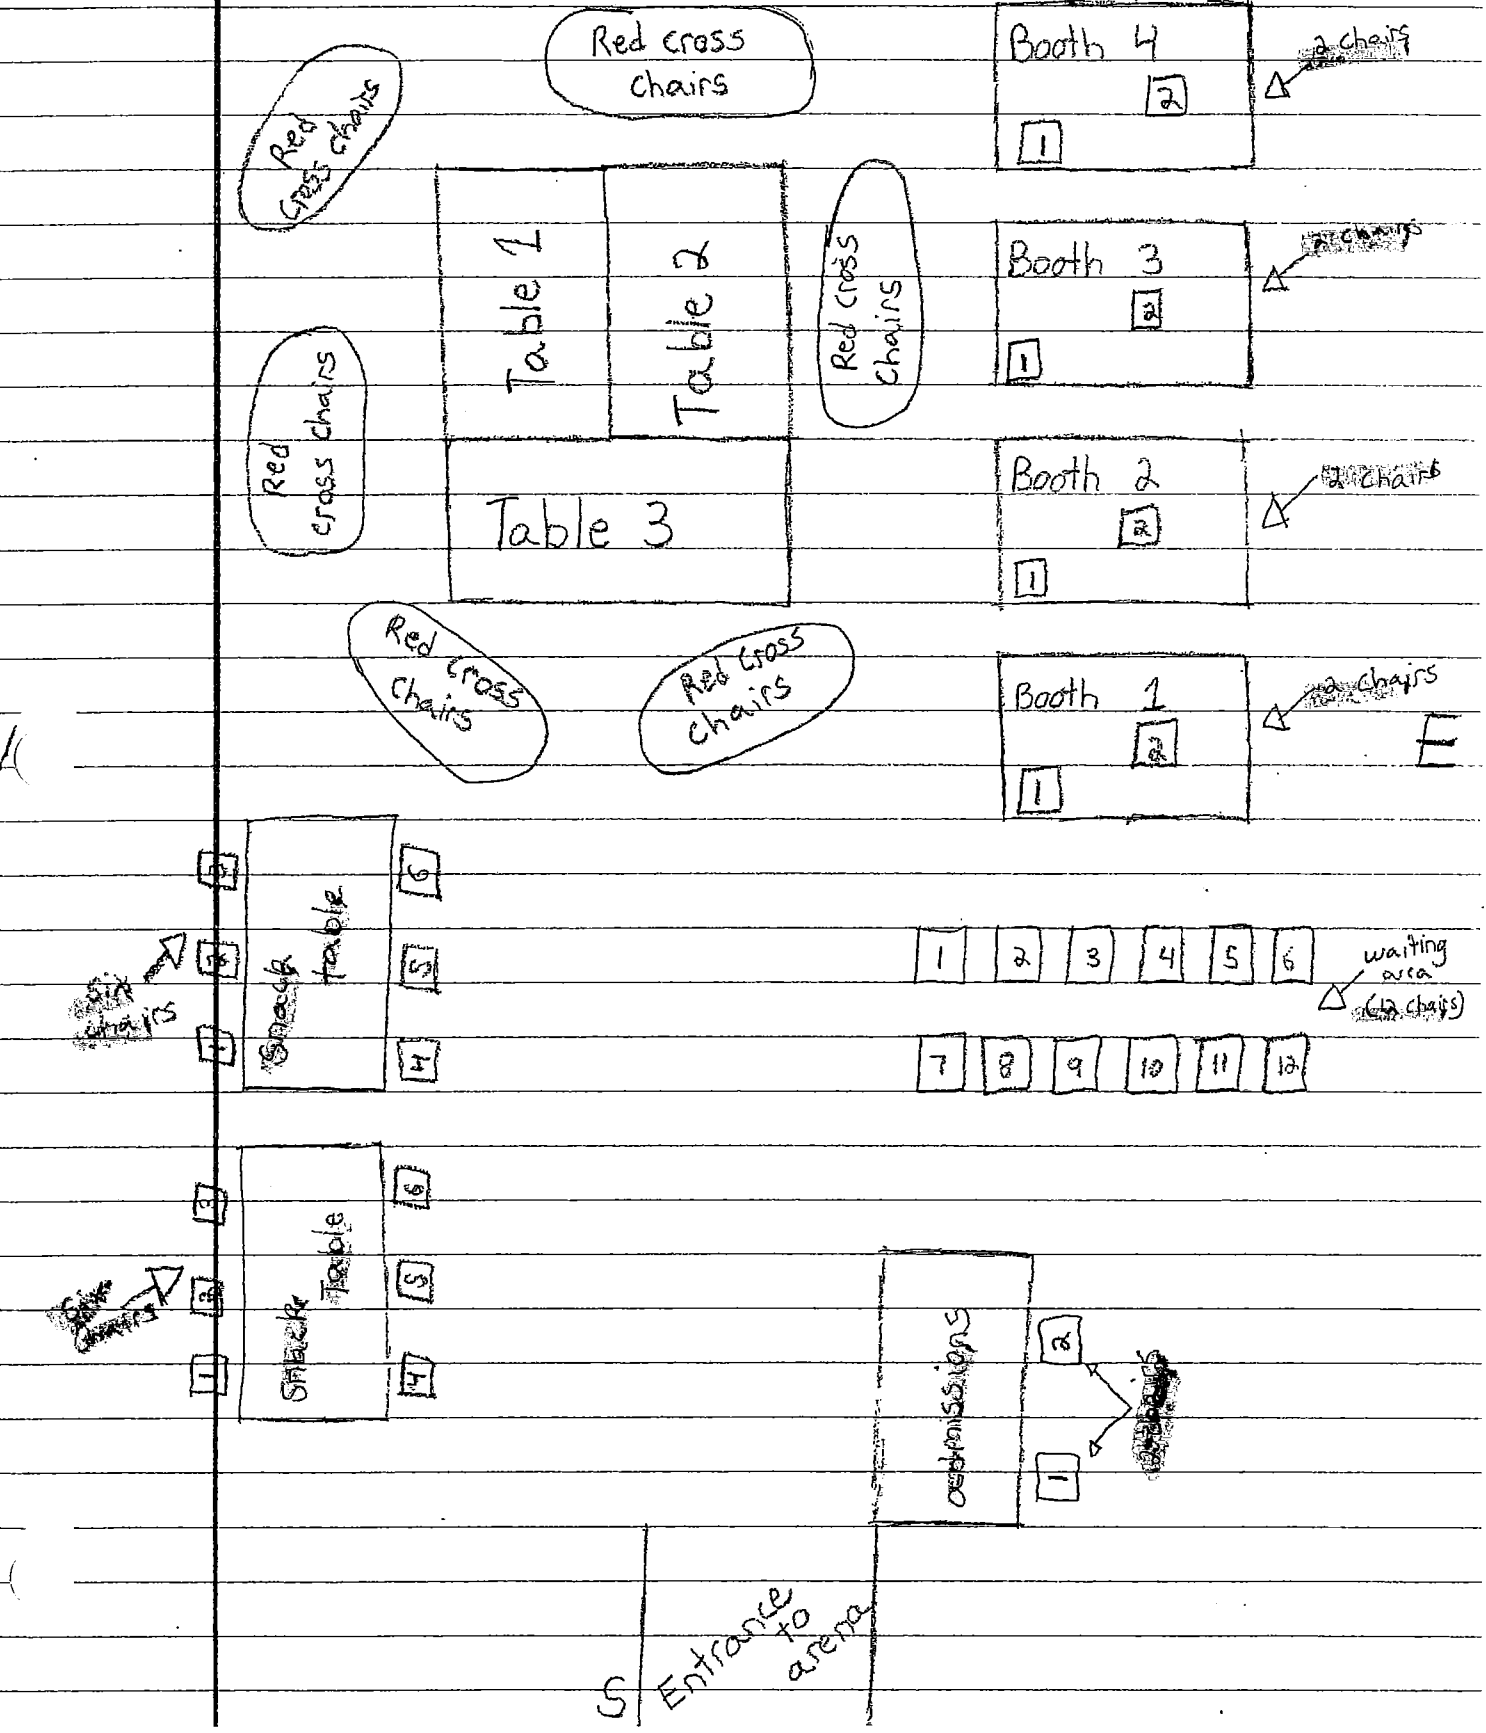 Red cross
chairs
Booth 4
2
1
2 chairs
Red
cross chairs
Table 1
Table 2
Red cross
chairs
Booth 3
2
1
2 chairs
Red
cross chairs
Table 3
Booth 2
2
1
2 chairs
Red cross
chairs
Red cross
chairs
Booth 1
2
1
2 chairs
E
3
2
1
Snack
table
6
5
4
Six
chairs
1 2 3 4 5 6
7 8 9 10 11 12
waiting
area
(12 chairs)
3
2
1
Snack
Table
6
5
4
Six
chairs
admissions
2
1
S
Entrance
to
arena